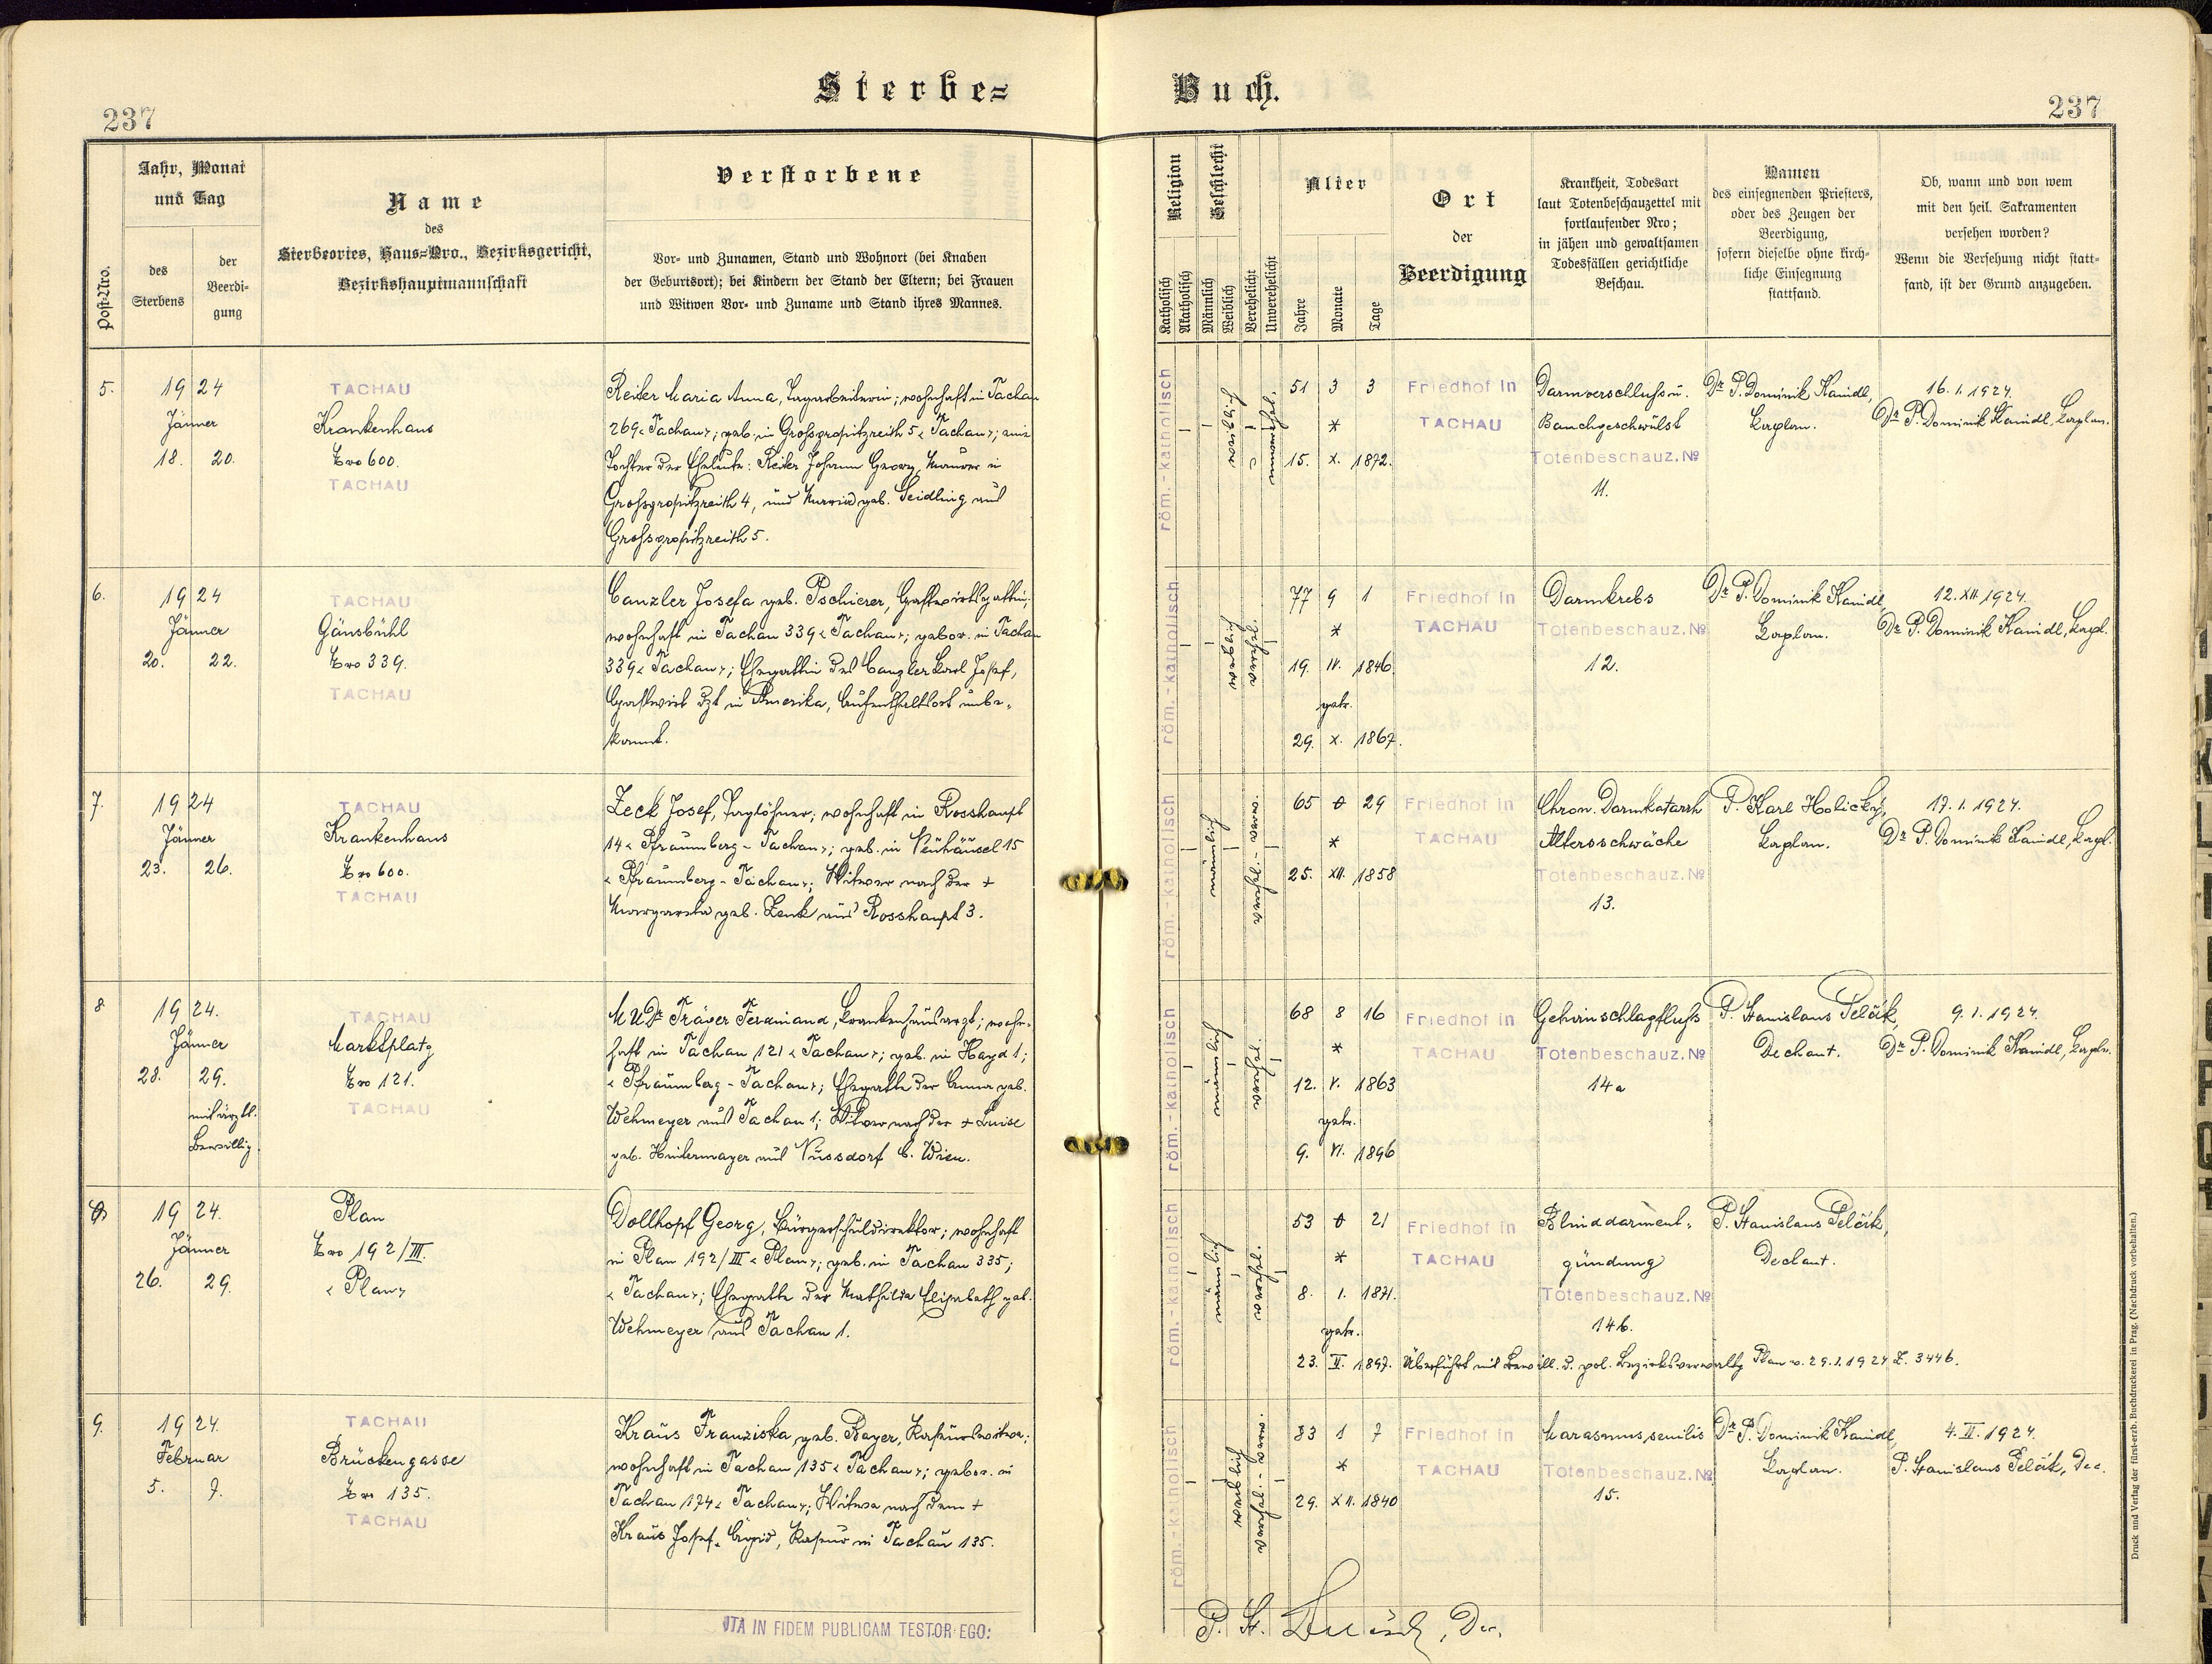 237
Sterbe=
Buch.
237
Post-Nro.
Jahr, Monat
und Tag
des
Sterbens
der
Beerdi-
gung
Name
des
Sterbeortes, Haus=Nro., Bezirksgericht,
Bezirkshauptmannschaft
Verstorbene
Vor- und Zunamen, Stand und Wohnort (bei Knaben
der Geburtsort); bei Kindern der Stand der Eltern; bei Frauen
und Witwen Vor- und Zuname und Stand ihres Mannes.
Religion
Katholisch
Akatholisch
Geschlecht
Männlich
Weiblich
Verehelicht
Unverehelicht
Alter
Jahre
Monate
Tage
Ort
der
Beerdigung
Krankheit, Todesart
laut Totenbeschauzettel mit
fortlaufender Nro;
in jähen und gewaltsamen
Todesfällen gerichtliche
Beschau.
Namen
des einsegnenden Priesters,
oder des Zeugen der
Beerdigung,
sofern dieselbe ohne kirch-
liche Einsegnung
stattfand.
Ob, wann und von wem
mit den heil. Sakramenten
versehen worden?
Wenn die Versehung nicht statt-
fand, ist der Grund anzugeben.
5.
19 24
Jänner
18. 20.
TACHAU
Krankenhaus
Nro 600.
TACHAU
Reiter Maria Anna, Tagarbeiterin; wohnhaft in Tachau
269 "Tachau"; geb. in Grossgropitzreith 5 "Tachau"; ehel.
Tochter der Eheleute: Reiter Johann Georg, Maurer in
Grossgropitzreith 4, und Maria geb. Seidling aus
Grossgropitzreith 5.
röm.-katholisch
weiblich
unverehel.
51 3 3
*
15. X. 1872.
Friedhof in
TACHAU
Darmverschluss u.
Bauchgeschwülst
Totenbeschauz. №
11.
Dr P. Dominik Kaindl,
Kaplan.
16. 1. 1924.
Dr P. Dominik Kaindl, Kaplan.
6.
19 24
Jänner
20. 22.
TACHAU
Gänsbühl
Nro 339.
TACHAU
Canzler Josefa geb. Pschierer, Gastwirtsgattin;
wohnhaft in Tachau 339 "Tachau"; gebor. in Tachau
339 "Tachau"; Ehegattin des Canzler Karl Josef,
Gastwirt dzt in Amerika, Aufenthaltsort unbe-
kannt.
röm.-katholisch
weiblich
verehel.
77 9 1
*
19. IV. 1846.
getr.
29. X. 1867.
Friedhof in
TACHAU
Darmkrebs
Totenbeschauz. №
12.
Dr P. Dominik Kaindl,
Kaplan.
12. XII. 1924.
Dr P. Dominik Kaindl, Kapl.
7.
19 24
Jänner
23. 26.
TACHAU
Krankenhaus
Nro 600.
TACHAU
Zeck Josef, Taglöhner; wohnhaft in Rosshaupt
14 "Pfraumberg - Tachau"; geb. in Neuhäusel 15
"Pfraumberg - Tachau"; Witwer nach der +
Margareta geb. Zenk aus Rosshaupt 3.
röm.-katholisch
männlich
verehel. - verw.
65 0 29
*
25. XII. 1858
Friedhof in
TACHAU
Chron. Darmkatarrh
Altersschwäche
Totenbeschauz. №
13.
P. Karl Holický,
Kaplan.
17. 1. 1924.
Dr P. Dominik Kaindl, Kapl.
8
19 24.
Jänner
28. 29.
mit ärztl.
Bewillig.
TACHAU
Marktplatz
Nro 121.
TACHAU
MUDr Träger Ferdinand, Krankenhausarzt; wohn-
haft in Tachau 121 "Tachau"; geb. in Hayd 1;
"Pfraumberg - Tachau"; Ehegatte der Anna geb.
Wehmeyer aus Tachau 1; Witwer nach der + Luise
geb. Hintermayer aus Nussdorf b. Wien.
röm.-katholisch
männlich
verehel.
68 8 16
*
12. V. 1863
getr.
9. VI. 1896
Friedhof in
TACHAU
Gehirnschlagfluss
Totenbeschauz. №
14a
P. Stanislaus Pelčák,
Dechant.
9. 1. 1924.
Dr P. Dominik Kaindl, Kapln.
19 24.
Jänner
26. 29.
Plan
Nro 192/III.
"Plan"
Dollhopf Georg, Bürgerschuldirektor; wohnhaft
in Plan 192/III "Plan"; geb. in Tachau 335;
"Tachau"; Ehegatte der Mathilda Elisabeth geb.
Wehmeyer aus Tachau 1.
röm.-katholisch
männlich
verehel.
53 0 21
*
8. 1. 1871.
getr.
23. II. 1897.
Friedhof in
TACHAU
Blinddarment-
zündung
Totenbeschauz. №
14b.
P. Stanislaus Pelčák,
Dechant.
Überführt mit Bewill. d. pol. Bezirksverwaltg Plan v. 29.1.1924 Z. 3446.
9.
19 24.
Februar
5. 7.
TACHAU
Brückengasse
Nro 135.
TACHAU
Kraus Franziska, geb. Bayer, Raseurswitwe;
wohnhaft in Tachau 135 "Tachau"; gebor. in
Tachau 174 "Tachau"; Witwe nach dem +
Kraus Josef Ägid, Raseur in Tachau 135.
röm.-katholisch
weiblich
verehel. - verw.
83 1 7
*
29. XII. 1840
Friedhof in
TACHAU
Marasmus senilis
Totenbeschauz. №
15.
Dr P. Dominik Kaindl,
Kaplan.
4. II. 1924.
P. Stanislaus Pelčák, Dec.
ITA IN FIDEM PUBLICAM TESTOR EGO:
P. St. Pelčák, Dec.
Druck und Verlag der fürst-erzb. Buchdruckerei in Prag. (Nachdruck vorbehalten.)